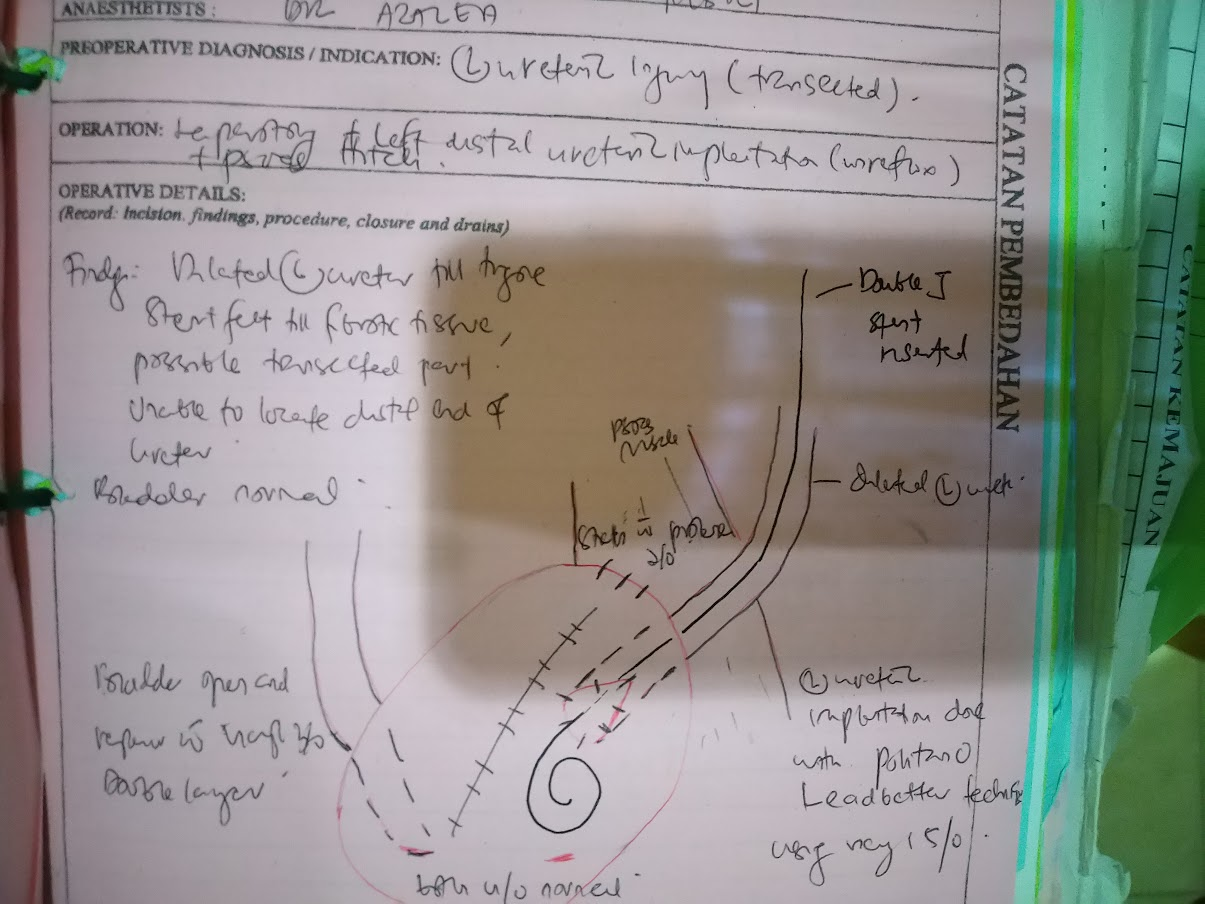 ANAESTHETISTS : DR AZALEA
PREOPERATIVE DIAGNOSIS / INDICATION: (L) ureteric injury (transected).
OPERATION: Laparotomy + Left distal ureteric implantation (
+ psoas hitch.
OPERATIVE DETAILS:
(Record: Incision. findings, procedure, closure and drains)
Findings: Dilated (L) ureter till
Stent felt till fibrotic tissue,
possible transected part.
Unable to locate distal end of
ureter
Bladder normal
Double J
stent
inserted
psoas
muscle
Dilated (L)
2/0
Bladder open and
repair
Double layer
(L) ureteric
implantation done
with politano
Leadbetter
using 5/0.
both u/o normal
CATATAN PEMBEDAHAN
CATATAN KEMAJUAN